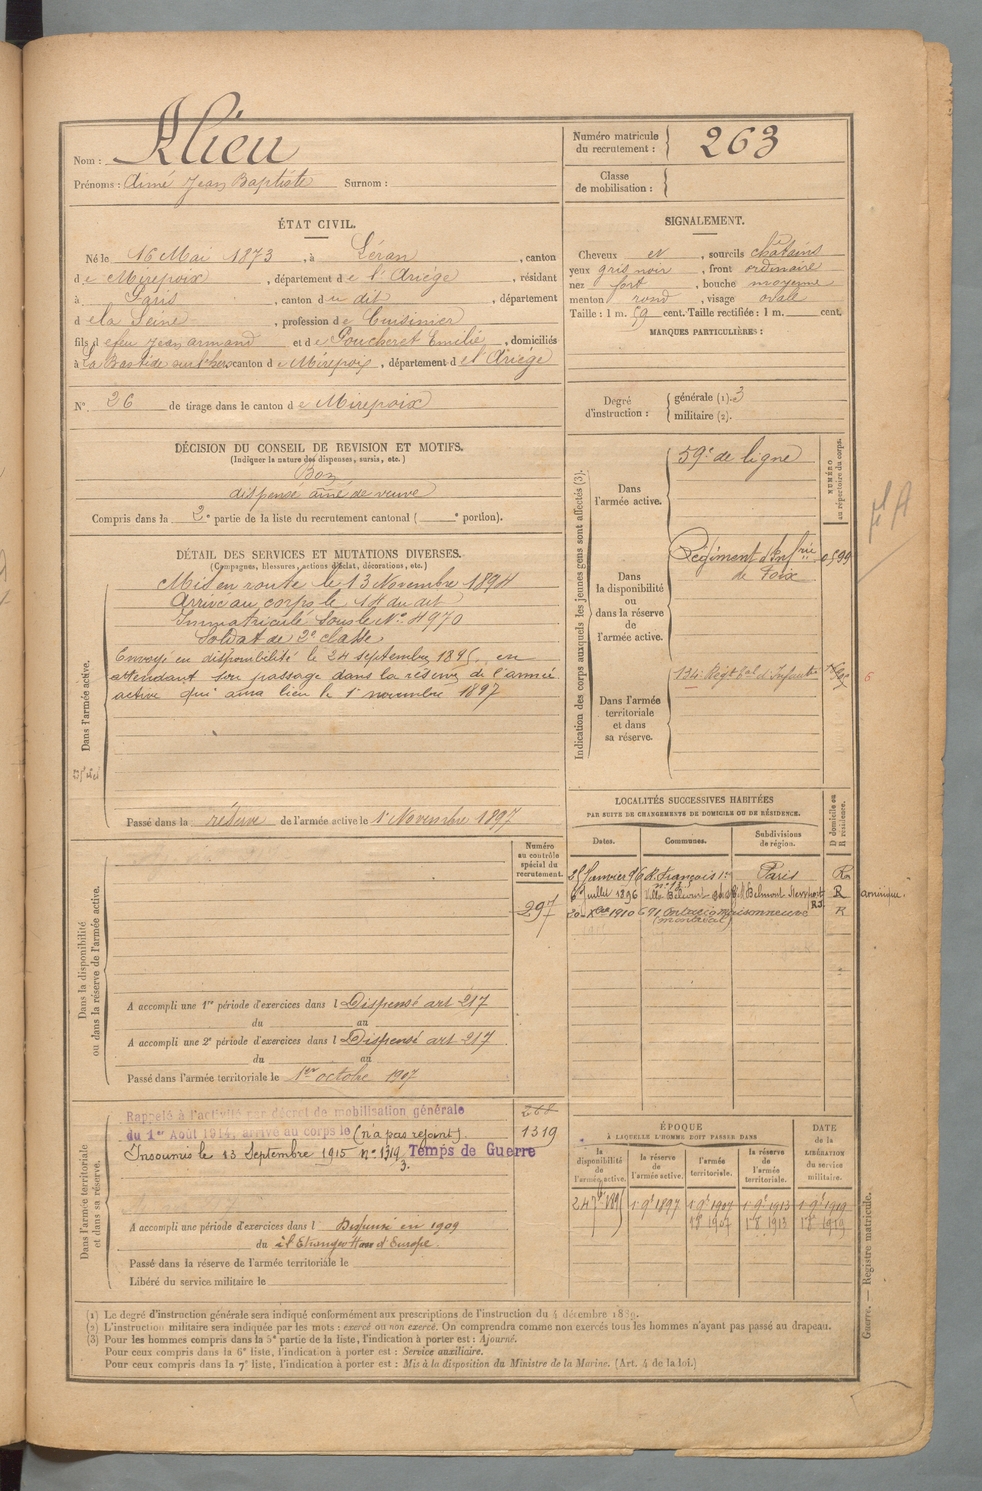 Nom : Alieu
Prénoms : Aimé Jean Baptiste Surnom :
Numéro matricule du recrutement : 263
Classe de mobilisation :
ÉTAT CIVIL.
Né le 16 Mai 1873, à Léran, canton
de Mirepoix, département de l'Ariège, résidant
à Paris, canton du dit, département
de la Seine, profession de Cuisinier
fils d efeu Jean armand et de Poucheret Emilie, domiciliés
à La Bastide sur l'hers canton de Mirepoix, département d el'Ariège
N° 26 de tirage dans le canton de Mirepoix
SIGNALEMENT.
Cheveux et, sourcils châtains
yeux gris noir, front ordinaire
nez fort, bouche moyenne
menton rond, visage ovale
Taille : 1 m. 59 cent. Taille rectifiée : 1 m. cent.
MARQUES PARTICULIÈRES :
Degré d'instruction : générale (1). 3
militaire (2).
DÉCISION DU CONSEIL DE REVISION ET MOTIFS.
(Indiquer la nature des dispenses, sursis, etc.)
Bon
dispensé aîné de veuve
Compris dans la 2e partie de la liste du recrutement cantonal ( e portion).
DÉTAIL DES SERVICES ET MUTATIONS DIVERSES.
(Campagnes, blessures, actions d'éclat, décorations, etc.)
Dans l'armée active.
Mis en route le 13 Novembre 1894
Arrivé au corps le 14 du dit
Immatriculé sous le N° 4970
Soldat de 2e classe
Envoyé en disponibilité le 24 septembre 1895, en
attendant son passage dans la réserve de l'armée
active qui aura lieu le 1er novembre 1897
Passé dans la réserve de l'armée active le 1er Novembre 1897
Indication des corps auxquels les jeunes gens sont affectés (3).
NUMÉRO au répertoire du corps.
Dans l'armée active.
59e de ligne
Dans la disponibilité ou dans la réserve de l'armée active.
Régiment d'Infrie de Foix
Dans l'armée territoriale et dans sa réserve.
134e Régt tal d'Infanterie
LOCALITÉS SUCCESSIVES HABITÉES
PAR SUITE DE CHANGEMENTS DE DOMICILE OU DE RÉSIDENCE.
D domicile ou R résidence.
Dates. Communes. Subdivisions de région.
25 Janvier 96 R. François 1er Paris R
6 Juillet 1896 R
20 Xbre 1910 R
Dans la disponibilité ou dans la réserve de l'armée active.
Numéro au contrôle spécial du recrutement.
297
A accompli une 1re période d'exercices dans l Dispensé art 217
du au
A accompli une 2e période d'exercices dans l Dispensé art 217
du au
Passé dans l'armée territoriale le 1er octobre 1907
Dans l'armée territoriale et dans sa réserve.
Rappelé à l'activité par décret de mobilisation générale
du 1er Août 1914, arrivé au corps le (n'a pas rejoint).
1319
Insoumis le 13 Septembre 1915 n° 1319 Temps de Guerre
3.
A accompli une période d'exercices dans l Dispensé en 1909
du à l'Etranger Hors d'Europe
Passé dans la réserve de l'armée territoriale le
Libéré du service militaire le
ÉPOQUE
À LAQUELLE L'HOMME DOIT PASSER DANS
DATE de la LIBÉRATION du service militaire.
la disponibilité de l'armée active. la réserve de l'armée active. l'armée territoriale. la réserve de l'armée territoriale.
24 7bre 1895 1er 9e 1897 1er 9e 1907 1er 9e 1913 1er 9e 1919
1er 8e 1907 1er 8e 1913 1er 8e 1919
Guerre. — Registre matricule.
(1) Le degré d'instruction générale sera indiqué conformément aux prescriptions de l'instruction du 4 décembre 1889.
(2) L'instruction militaire sera indiquée par les mots : exercé ou non exercé. On comprendra comme non exercés tous les hommes n'ayant pas passé au drapeau.
(3) Pour les hommes compris dans la 5e partie de la liste, l'indication à porter est : Ajourné.
Pour ceux compris dans la 6e liste, l'indication à porter est : Service auxiliaire.
Pour ceux compris dans la 7e liste, l'indication à porter est : Mis à la disposition du Ministre de la Marine. (Art. 4 de la loi.)